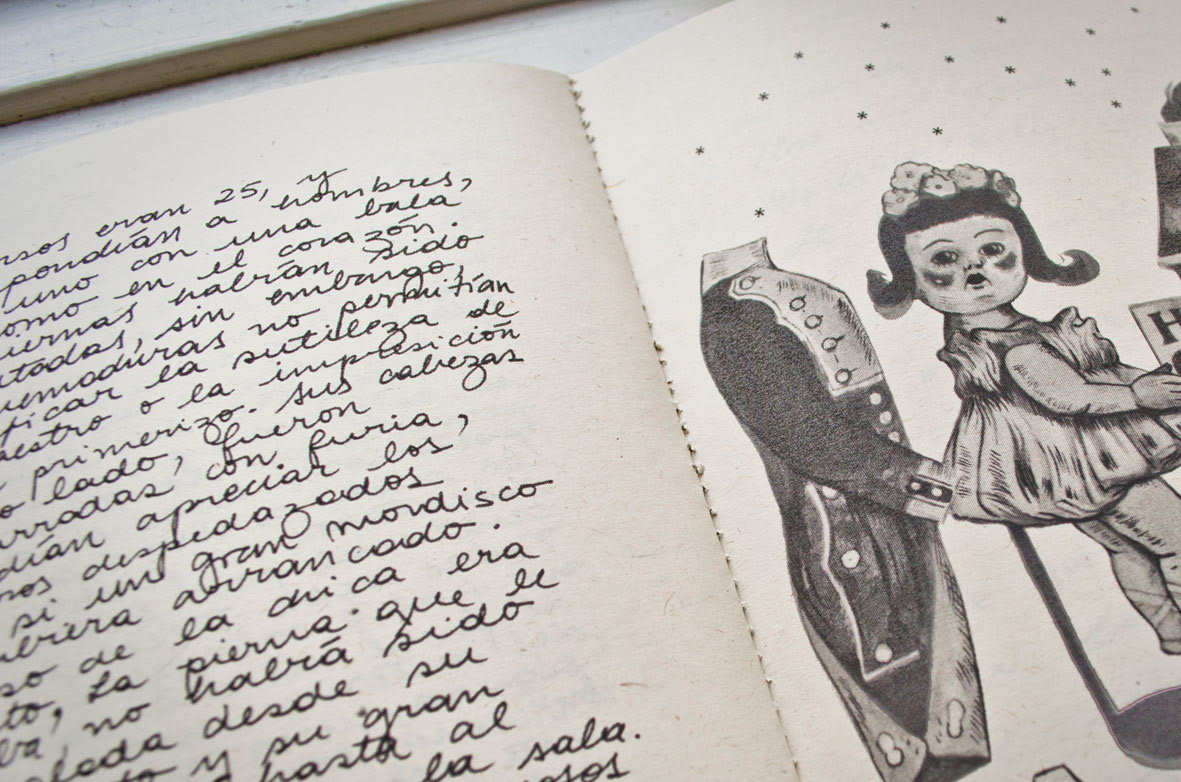 eran 25, y
pondían a hombres,
uno con una bala
omo en el corazón.
iernas habrán sido
utadas, sin embargo,
uemaduras no permitían
ficar la sutileza de
aestro o la impresición
primerizo. Sus cabezas
o lado, fueron
arradas con furia,
dían apreciar los
sos despedazados
si un gran mordisco
ubiera arrancado.
so de la chica era
to, la pierna que le
ba, no habrá sido
lada desde su
to y su gran
hasta al
la sala.
osos
H